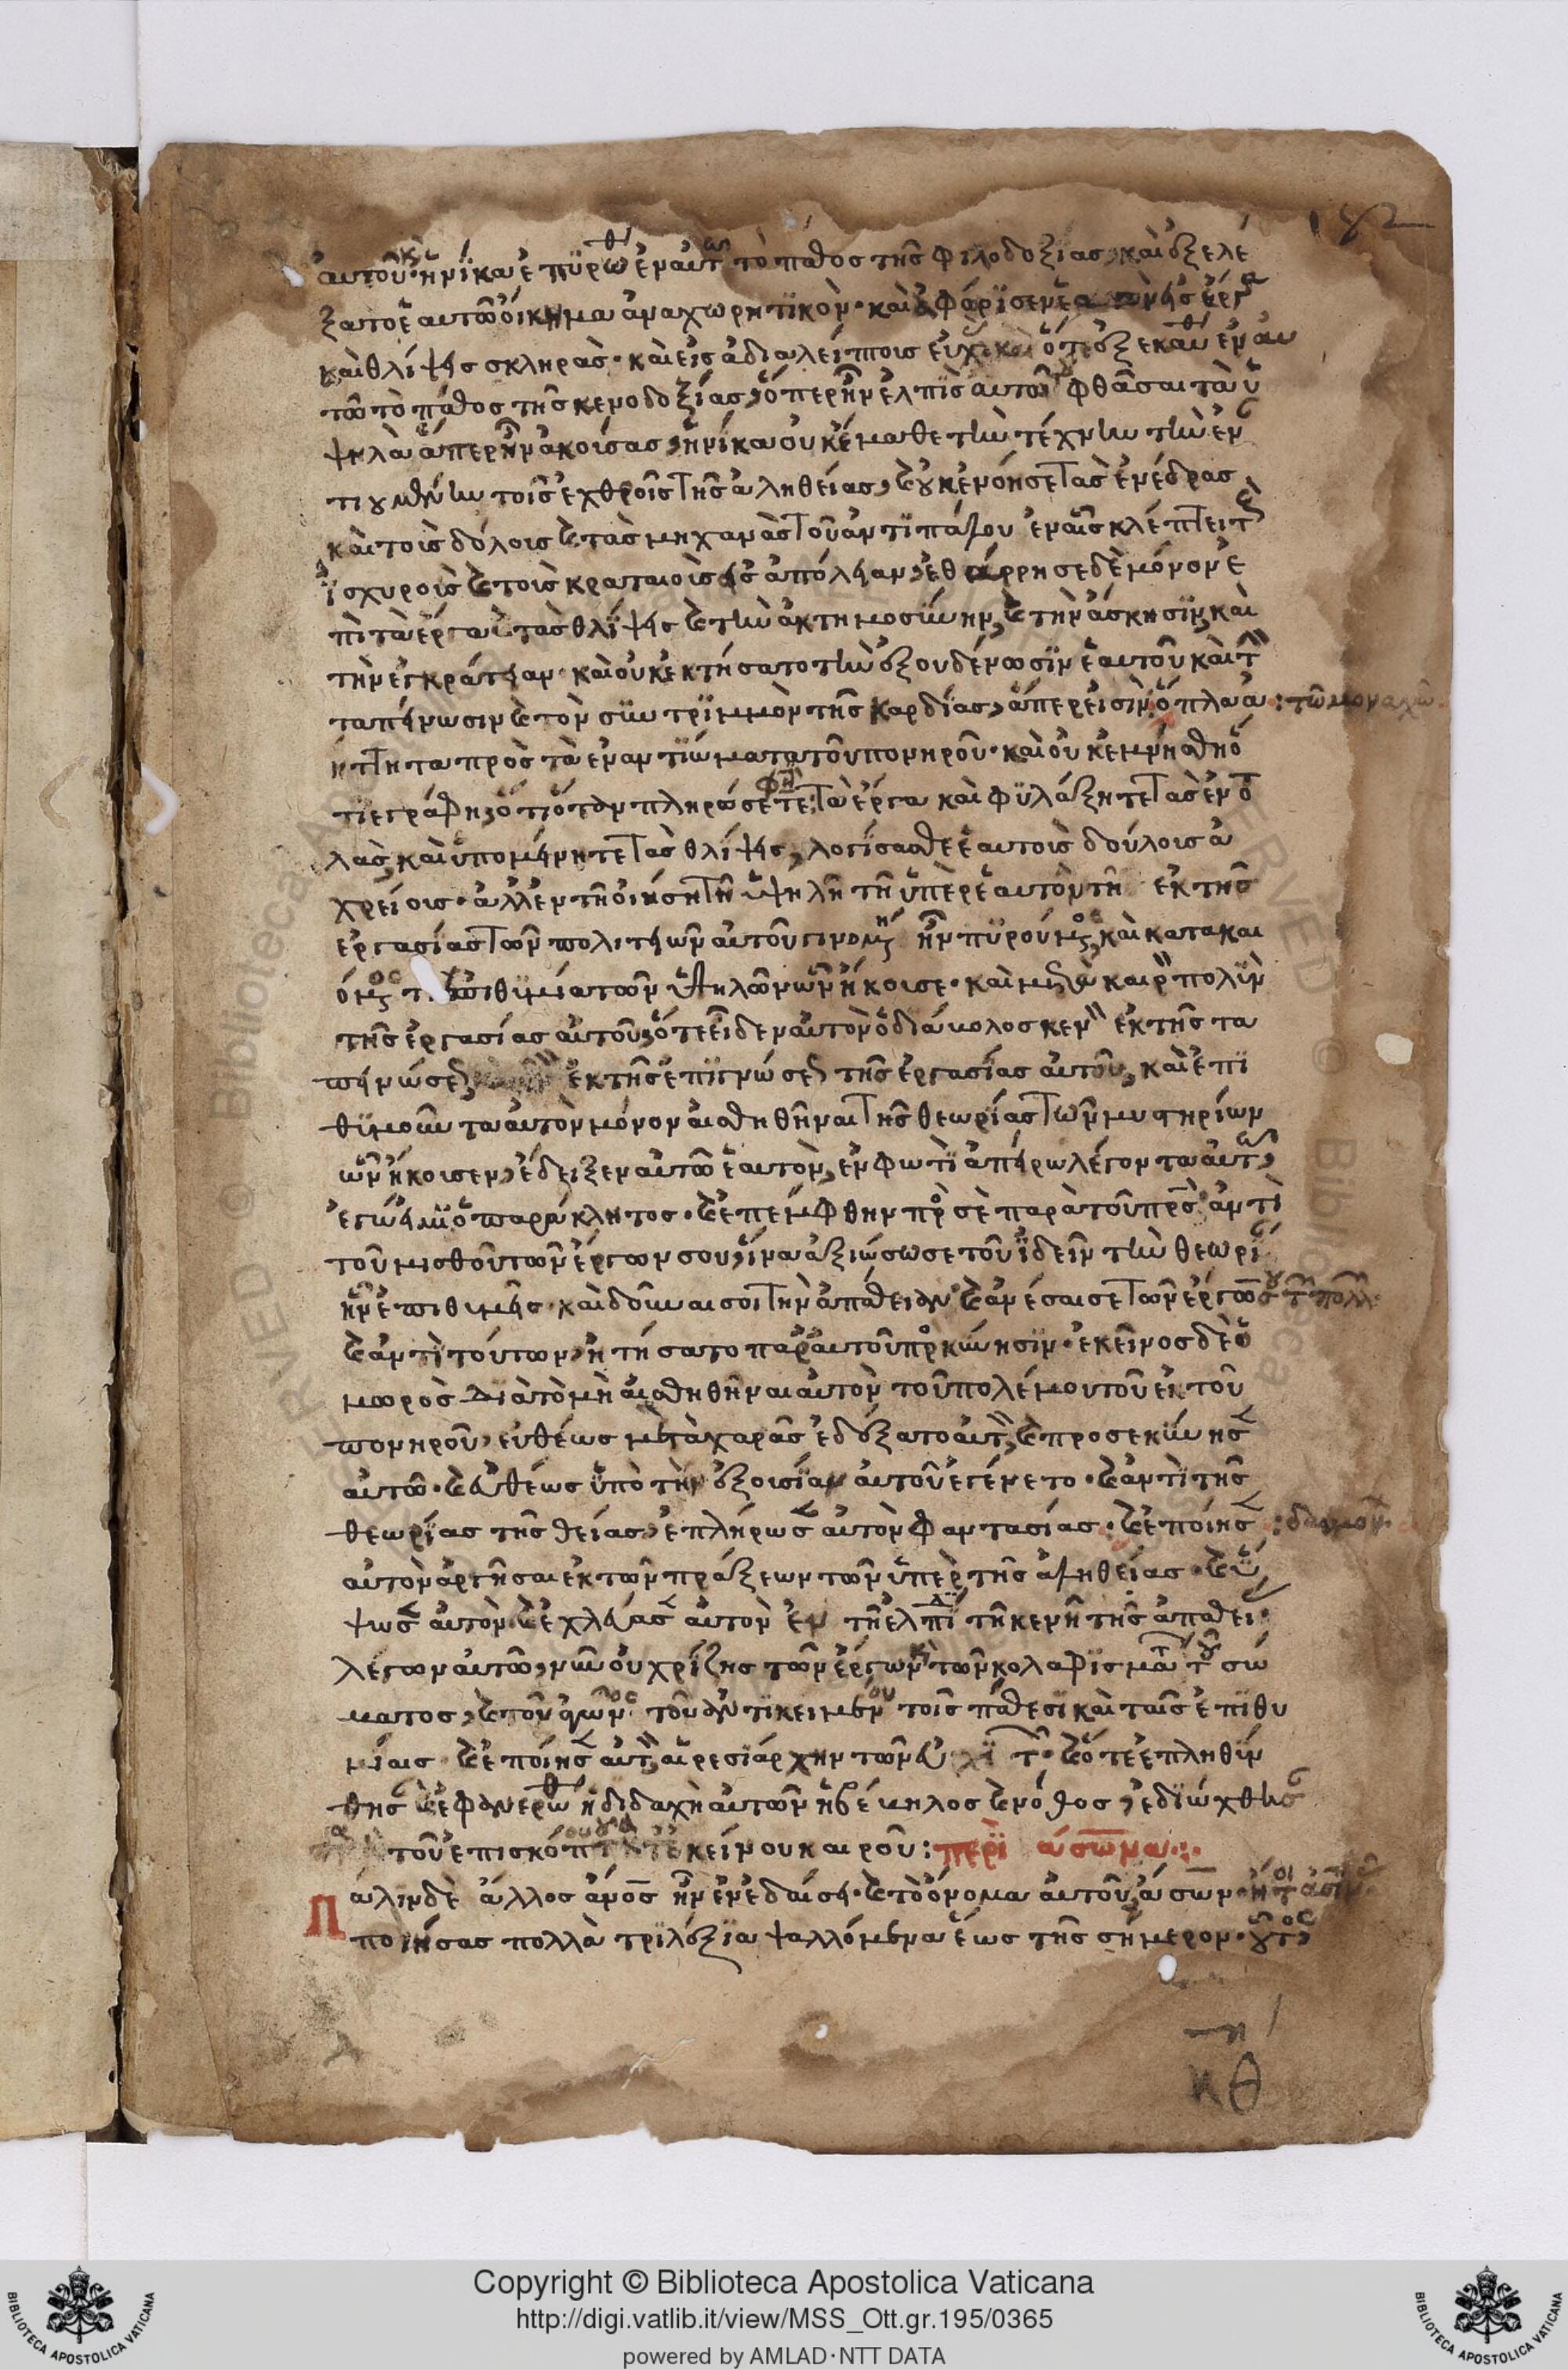 αὐτοῦ· ἡνίκα ἐπυρώθ ἐν αὐτῶ τὸ πάθος τῆς φιλοδοξίας, καὶ ἐξελέ
ξατο ἑαυτῶ οἴκημα ἀναχωρητικὸν· καὶ ἀφόρισεν εἰς ἔργα
καὶ θλίψεις σκληρὰς· καὶ εἰς ἀδιαλείπτοις εὐχ καὶ ὅτε ἐξεκαύθ ἐν αυ
τῶ τὸ πάθος τῆς κενοδοξίας, ὅπερ ἦν ἐλπὶς αυτοῦ φθᾶσαι τὰ ὑ
ψηλὰ ἅπερ ἦν ἀκούσας, ἡνίκα οὐκ ἔμαθε τὴν τέχνην τὴν ἐν
τοῖς ἐχθροῖς τῆς ἀληθείας, καὶ οὐκ ἐνόησε τὰς ἐνέδρας
καὶ τοὺς δόλους καὶ τὰς μηχανὰς τοῦ ἀντιπάλου ἐν αἷς κλέπτει τ
ἰσχυροὺς καὶ τοὺς κραταιοὺς εἰς ἀπόλειαν, ἐθάρρησε δὲ μόνον ἐ
πὶ τὰ ἔργα καὶ τὰς θλίψεις καὶ τὴν ἀκτημοσύνην, καὶ τὴν ἄσκησιν, καὶ
τὴν ἐγκράτειαν· καὶ οὐκ ἐκτήσατο τὴν ἐξουδένωσιν ἑαυτοῦ καὶ τὴν
ταπείνωσιν καὶ τὸν συντριμμὸν τῆς καρδίας, ἅπερ εἰσὶν ὅπλα ἀ : τῶν μοναχῶν
ήττητα πρὸς τὰ ἐναντιώματα τοῦ πονηροῦ· καὶ οὐκ ἐμνήσθη ὅ
τι ἐγράφη, ὅτι ὅταν πληρώσετε φη τὰ ἔργα καὶ φυλάξητε τὰς ἐντο
λὰς, καὶ ὑπομείνητε τὰς θλίψεις, λογίσασθε ἑαυτοὺς δούλους ἀ
χρείους· ἀλλ' ἐν τῆ οἰήσει τῆ ὑψηλῆ τῆ ὑπὲρ ἑαυτὸν τῆ ἐκ τῆς
ἐργασίας τῶν πολιτειῶν αὐτοῦ γινομένη ἦν πυρούμενος, καὶ κατακαι
όμενος τῆ ἐπιθυμία τῶν ὑψηλῶν ὧν ἤκουσε· καὶ μετὰ καιρὸν πολὺν
τῆς ἐργασίας αὐτοῦ, ὅτε εἶδεν αὐτὸν ὁ διάβολος κενὸν ἐκ τῆς τα
πεινώσεως, ἐκ τῆς ἐπιγνώσεως τῆς ἐργασίας αὐτοῦ, καὶ ἐπι
θυμοῦντα αὐτὸν μόνον αἰσθηθῆναι τῆς θεωρίας τῶν μυστηρίων
ὧν ἤκουσεν, ἔδειξεν αὐτῶ ἑαυτὸν, ἐν φωτὶ ἀπείρω λέγοντα αὐτῶ,
ἐγώ εἰμι ὁ παράκλητος· καὶ ἐπέμφθην πρὸς σὲ παρὰ τοῦ πρς ἀντὶ
τοῦ μισθοῦ τῶν ἔργων σου, ἵνα ἀξιώσω σε τοῦ ἰδεῖν τὴν θεωρί
ἣν ἐπιθυμεῖς· καὶ δοῦναι σοι τὴν ἀπάθειαν καὶ ἀνέσαι σε τῶν ἔργων σου τῶν πολλῶν·
καὶ ἀντὶ τούτων, ἠτήσατο παρ' αυτοῦ προσκύνησιν· ἐκεῖνος δὲ ὁ
μωρὸς διὰ τὸ μὴ αἰσθηθῆναι αὐτὸν τοῦ πολέμου τοῦ ἐκ τοῦ
πονηροῦ, εὐθέως μετὰ χαρᾶς ἐδέξατο αὐτὸν, καὶ προσεκύνησεν
αὐτῶ· καὶ εὐθέως ὑπὸ τὴν ἐξουσίαν αὐτοῦ ἐγένετο· καὶ ἀντὶ τῆς
θεωρίας τῆς θείας, ἐπλήρωσεν αὐτὸν φαντασίας· καὶ ἐποίησεν : δαιμον·
αὐτὸν ἀργῆσαι ἐκ τῶν πράξεων τῶν ὑπὲρ τῆς ἀληθείας· καὶ ὕ
ψωσεν αὐτὸν καὶ ἐχλεύασεν αὐτὸν ἐν τῆ ἐλπίδι τῆ κενῆ τῆς ἀπαθεί·
λέγων αὐτῶ, νῦν οὐ χρήζεις τῶν ἔργων καὶ τῶν κολαφισμάτ τοῦ σώ
ματος, καὶ τοῦ ἀγῶνος τοῦ ἀντικειμένου τοῖς πάθεσι καὶ ταῖς ἐπιθυ
μίαις καὶ ἐποίησεν αὐτὸν αἱρεσιάρχην τῶν καὶ ὅτε ἐπληθύν
θησ καὶ ἐφανερώθ ἡ διδαχὴ αὐτῶν ἡ βέβηλος καὶ νόθος, ἐδιώχθησ
τοῦ ἐπισκόπου ἐκείνου καιροῦ : περὶ ἀσῶνα·:·
Πάλιν δὲ ἄλλος ἀνος ἦν ἐν ἐδαίση· καὶ τὸ ὄνομα αὐτοῦ, ἀσῶν·
ποιήσας πολλὰ τριλέξια ψαλλόμενα ἕως τῆς σήμερον· οὗτος
κθ
Copyright © Biblioteca Apostolica Vaticana
http://digi.vatlib.it/view/MSS_Ott.gr.195/0365
powered by AMLAD·NTT DATA